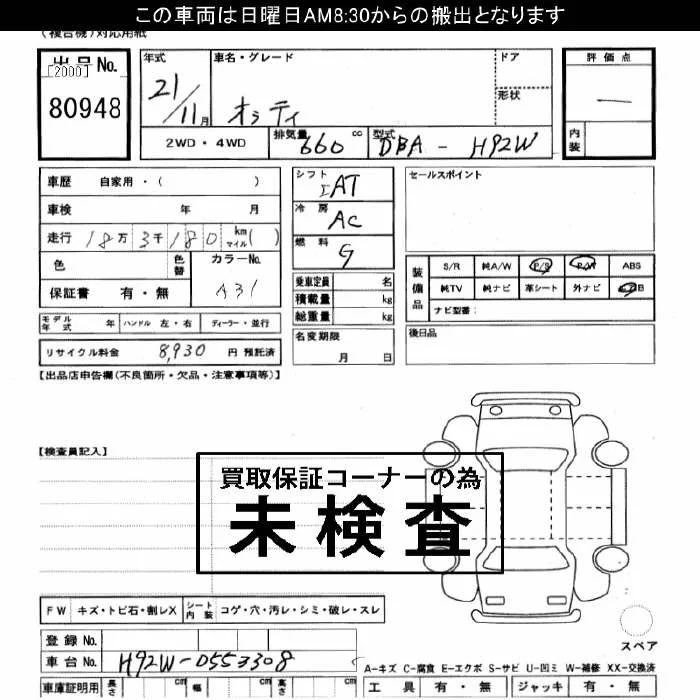 この車両は日曜日AM8:30からの搬出となります
(複合機)対応用紙
出品No.
[2000]
80948
年式
21/11月
車名・グレード
オッティ
ドア
形状
評価点
―
内装
2WD・4WD
排気量 660 cc
型式 DBA - H92W
車歴 自家用・( )
車検 年 月
走行 18万3千180 km マイル( )
色 色替 カラーNo.
保証書 有・無 A31
シフト
IAT
冷房
AC
燃料
G
乗車定員 名
積載量 kg
総重量 kg
セールスポイント
装備品
S/R 純A/W P/S P/W ABS
純TV 純ナビ 革シート 外ナビ A/B
ナビ型番:
モデル年式 年 ハンドル 左・右 ディーラー・並行
リサイクル料金 8,930 円 預託済
名変期限
月 日
後日品
【出品店申告欄(不良箇所・欠品・注意事項等)】
【検査員記入】
買取保証コーナーの為
未検査
FW キズ・トビ石・割レX シート内装 コゲ・穴・汚レ・シミ・破レ・スレ
登録No.
車台No. H92W-0553308
スペア
A-キズ C-腐食 E-エクボ S-サビ U-凹ミ W-補修 XX-交換済
車庫証明用 長さ cm 幅 cm 高さ cm
工具 有・無 ジャッキ 有・無